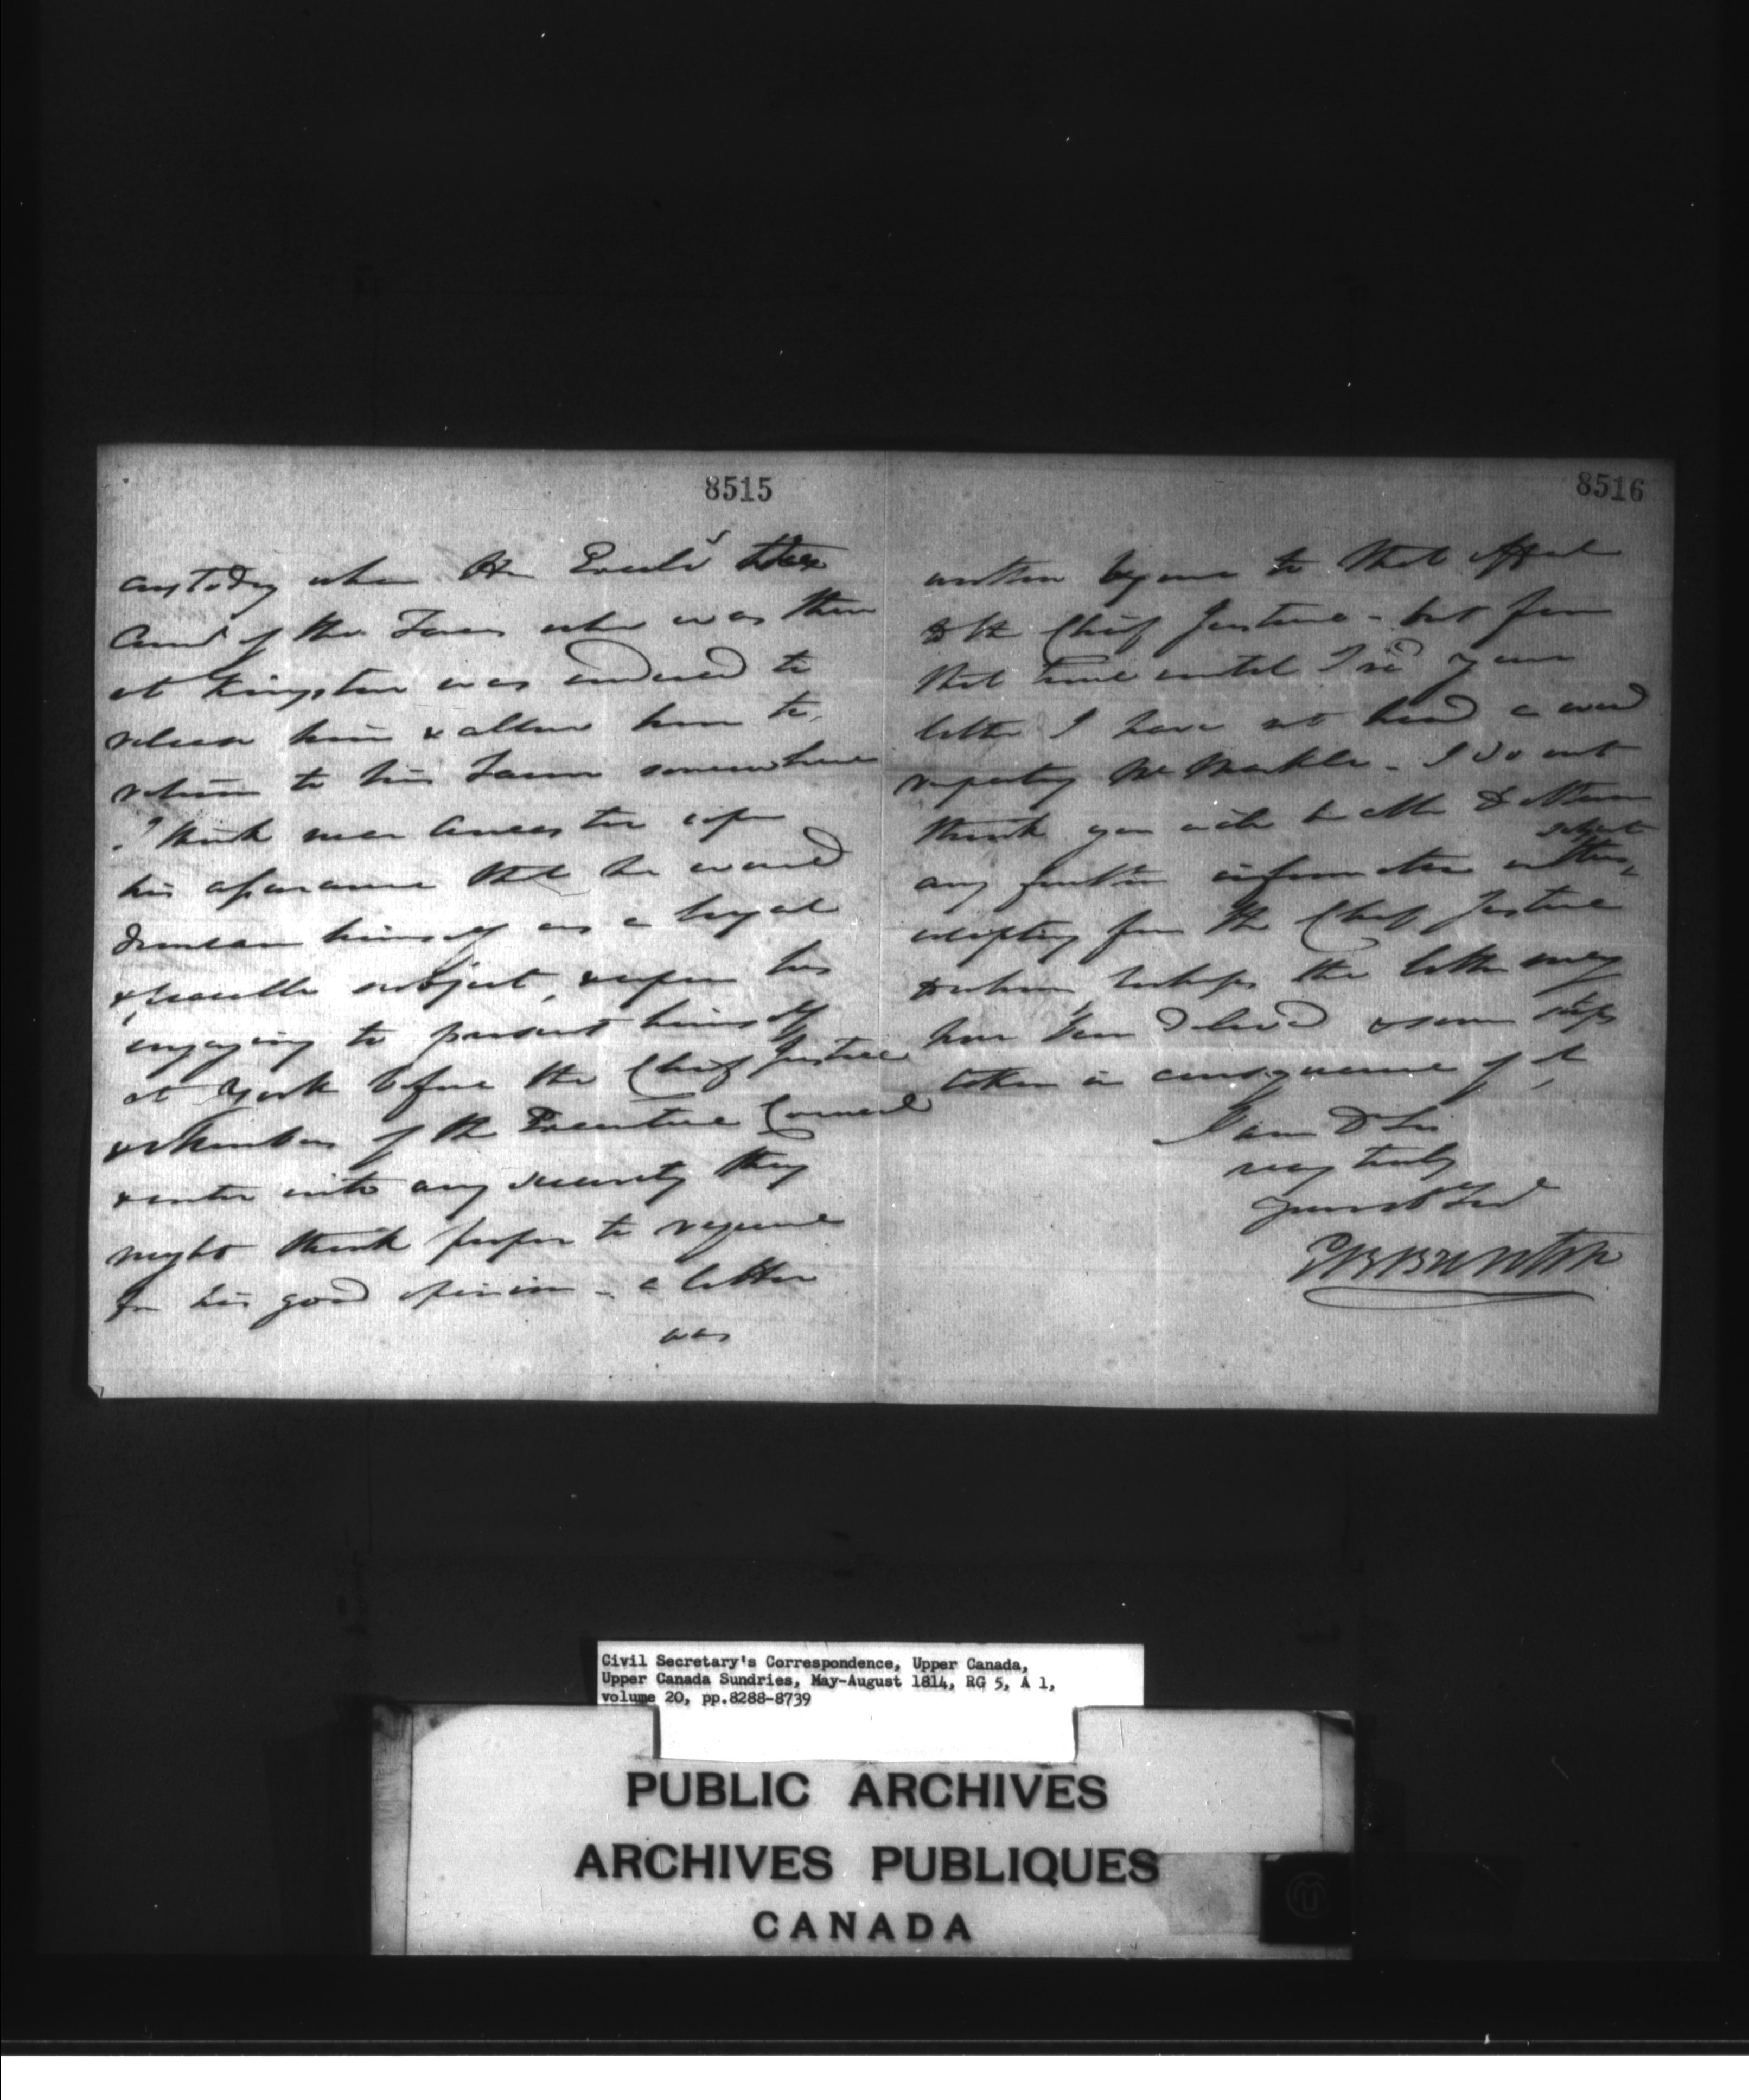 8515
custody when His Excell'y the
Com'r of the Forces who was then
at Kingston was induced to
release him & allow him to
return to his Farm somewhere
I think near Ancaster upon
his assurance that he would
demean himself as a loyal
& peaceable subject, & upon his
engaging to present himself
at York before the Chief Justice
& Members of the Executive Council
& enter into any security they
might think proper to require
for his good opinion - a letter
was
8516
written by me to that effect
to the Chief Justice - but from
that time until I rec'd your
letter I have not heard a word
respecting Mr Markle - I do not
think you will be able to obtain
any further information on this
subject
excepting from the Chief Justice
to whom perhaps the letter may
have been deliv'd & some steps
taken in consequence of it
I am D'r Sir
very truly
Your Ob' Ser'
Civil Secretary's Correspondence, Upper Canada,
Upper Canada Sundries, May-August 1814, RG 5, A 1,
volume 20, pp.8288-8739
PUBLIC ARCHIVES
ARCHIVES PUBLIQUES
CANADA